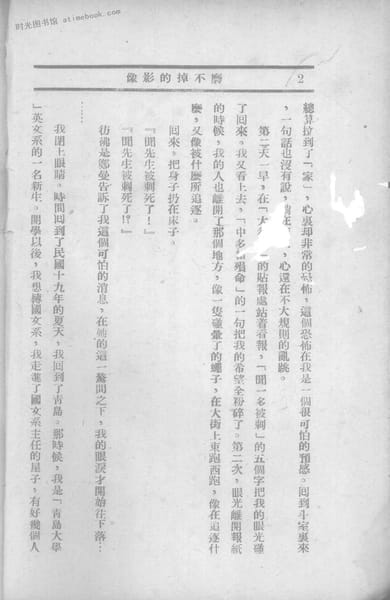 时光图书馆 atimebook.com
2
磨不掉的影像
總算拉到了「家」，心裏却非常的恐怖，這個恐怖在我是一個很可怕的預感。回到斗室裏來
，一句話也沒有說，在，心還在不大規則的亂跳。
第二天一早，在「大」的貼報處站着看報，「聞一多被刺」的五個字把我的眼光碰
了回來。我又看上去，「中多命」的一句把我的希望全粉碎了。第二次，眼光離開報紙
的時候，我的人也離開了那個地方，像一隻碰暈了的蠅子，在大街上東跑西跑，像在追逐什
麼，又像被什麼所追逐。
回來。把身子扔在床子。
『聞先生被刺死了！』
『聞先生被刺死了!?』
彷彿是鄭曼告訴了我這個可怕的消息，在她的這一驚問之下，我的眼淚才開始往下落…
我閉上眼睛。時間回到了民國十九年的夏天，我回到了青島。那時候，我是「青島大學
」英文系的一名新生。開學以後，我想轉國文系，我走進了國文系主任的屋子，有好幾個人